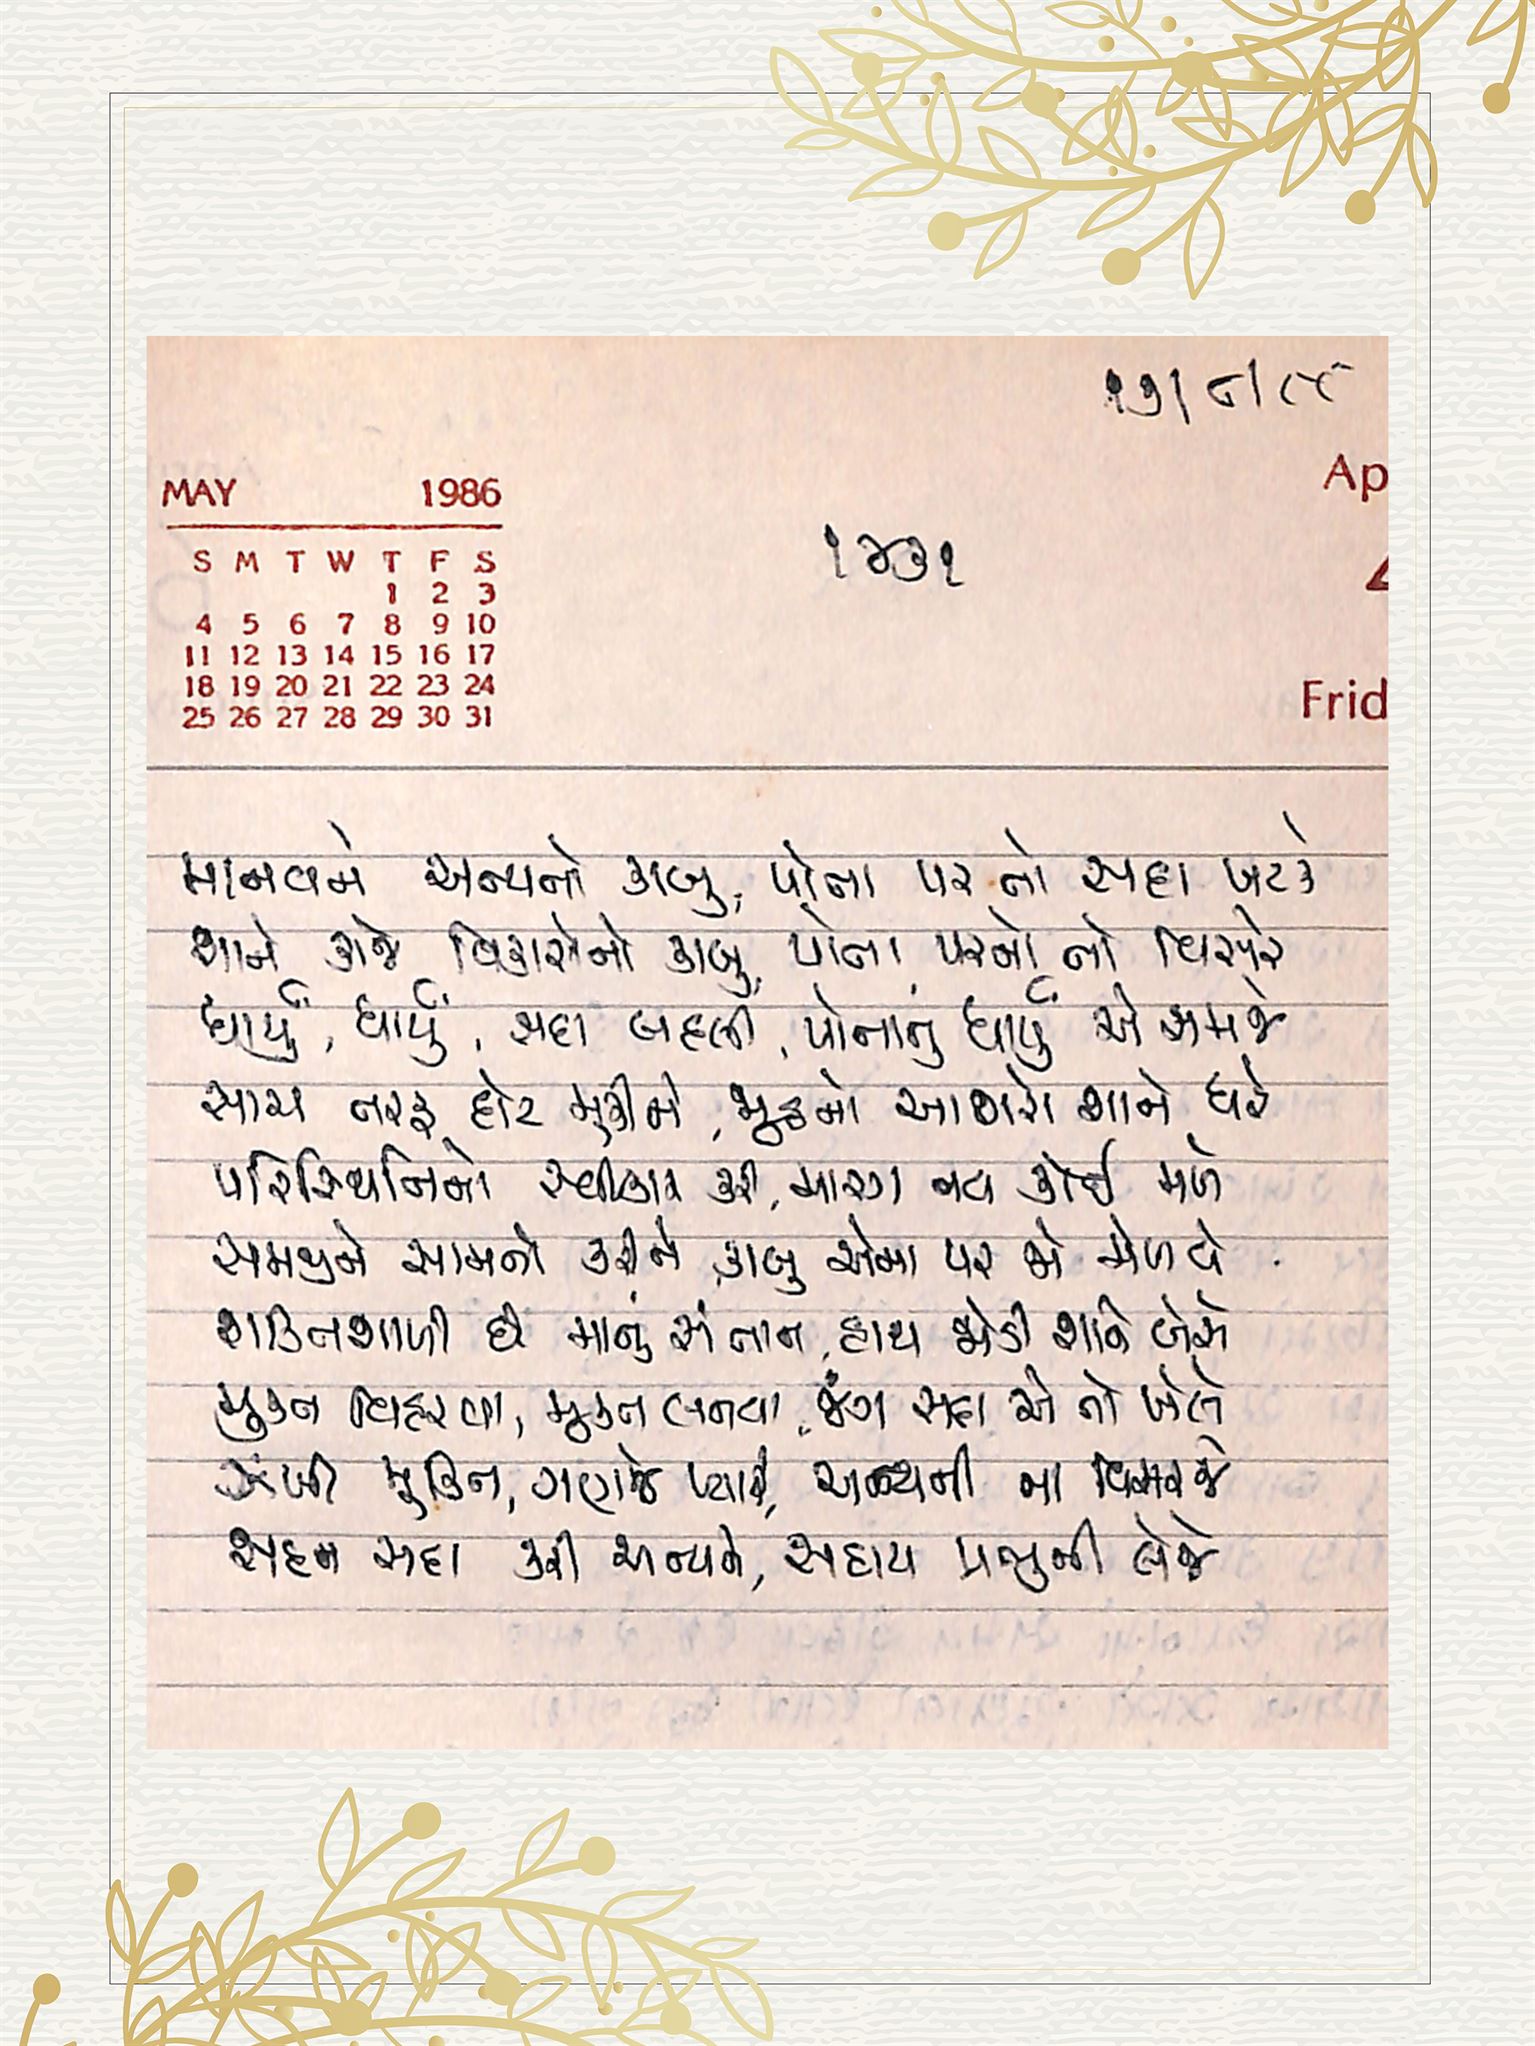 ૧૭/૮/૮૮
Ap
MAY 1986
૧૪૩૧
S M T W T F S
1 2 3
4 5 6 7 8 9 10
11 12 13 14 15 16 17
18 19 20 21 22 23 24
25 26 27 28 29 30 31
Frid
માનવને અન્યનો કાબુ, પોતા પર તો સદા ખટકે
શાને કાજે વિકારોનો કાબુ, પોતા પરનો તો વિસરે
ધાર્યું, ધાર્યું, સદા બદલી, પોતાનું ધાર્યું એ સમજે
સાચ તરફ હોટ મૂકીને, જૂઠનો આશરો શાને ધરે
પરિસ્થિતિનો સ્વીકાર કરી, મારગ નવ કોઈ મળે
સમજીને સામનો કરીને, કાબુ એમા પર જો મેળવે
શક્તિશાળી છે માનું સંતાન, હાથ જોડી શાને બેસે
મુક્ત વિહરવા, મૂક્ત બનવા, જંગ સદા એ તો ખેલે
ઝંખી મુક્તિ, ગણજે પ્યારી, અન્યની ના વિસરજે
સહન સદા કરી અન્યને, સહાય પ્રભુની લેજે